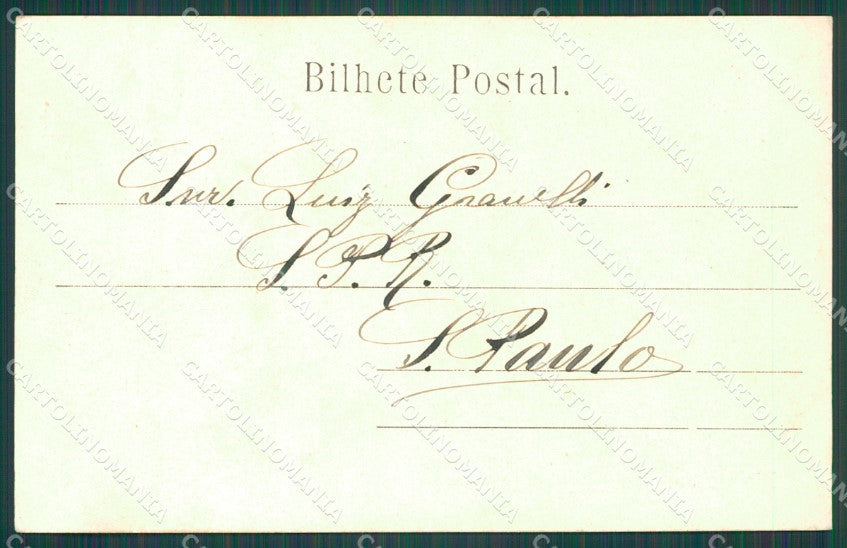 Bilhete Postal.
Snr. Luiz Granelli
S. P. R.
S. Paulo
CARTOLINOMANIA